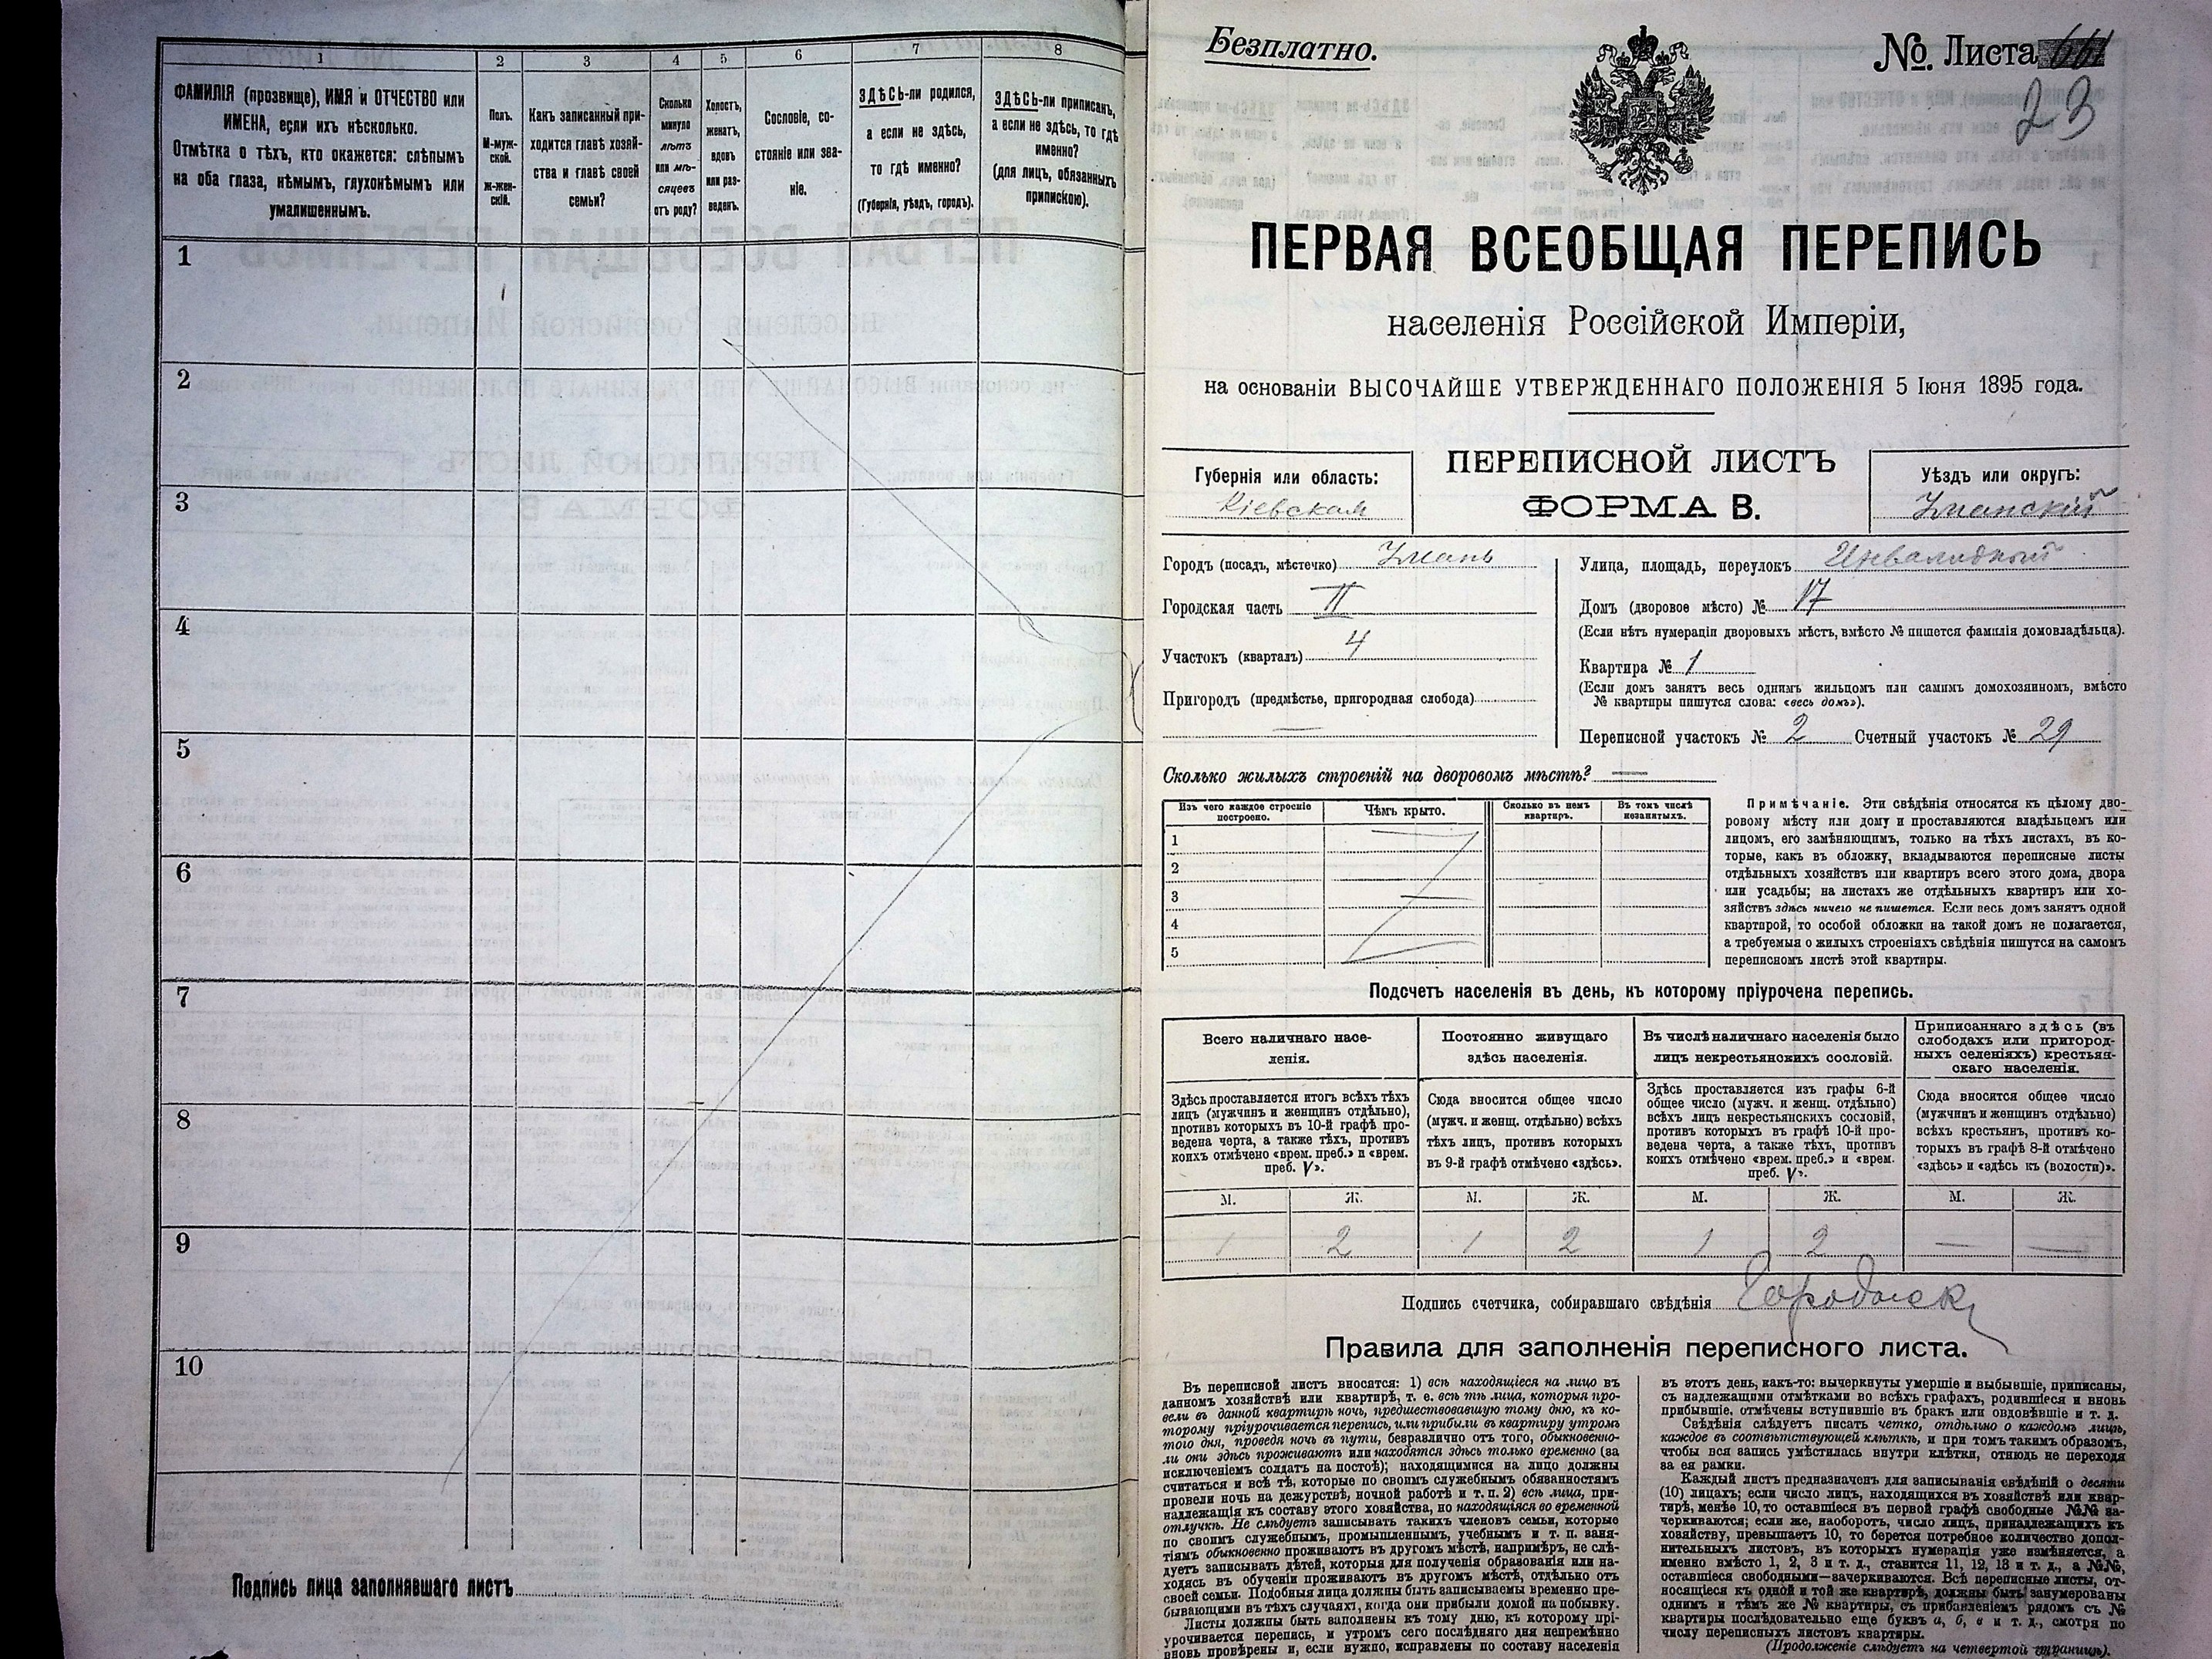 1 2 3 4 5 6 7 8
ФАМИЛІЯ (прозвище), ИМЯ и ОТЧЕСТВО или
ИМЕНА, если ихъ нѣсколько.
Отмѣтка о тѣхъ, кто окажется: слѣпымъ
на оба глаза, нѣмымъ, глухонѣмымъ или
умалишеннымъ.
Полъ.
М-муж-
ской.
ж-жен-
скій.
Какъ записанный при-
ходится главѣ хозяй-
ства и главѣ своей
семьи?
Сколько
минуло
лѣтъ
или мѣ-
сяцевъ
отъ роду?
Холостъ,
женатъ,
вдовъ
или раз-
веденъ.
Сословіе, со-
стояніе или зва-
ніе.
ЗДѢСЬ-ли родился,
а если не здѣсь,
то гдѣ именно?
(Губернія, уѣздъ, городъ).
ЗДѢСЬ-ли приписанъ,
а если не здѣсь, то гдѣ
именно?
(для лицъ, обязанныхъ
припискою).
1
2
3
4
5
6
7
8
9
10
Подпись лица заполнявшаго листъ
Безплатно.
№. Листа
23
ПЕРВАЯ ВСЕОБЩАЯ ПЕРЕПИСЬ
населенія Россійской Имперіи,
на основаніи ВЫСОЧАЙШЕ УТВЕРЖДЕННАГО ПОЛОЖЕНІЯ 5 Іюня 1895 года.
Губернія или область:
Кіевская
ПЕРЕПИСНОЙ ЛИСТЪ
ФОРМА В.
Уѣздъ или округъ:
Уманскій
Городъ (посадъ, мѣстечко) Умань
Городская часть II
Участокъ (кварталъ) 4
Пригородъ (предмѣстье, пригородная слобода)
—
Улица, площадь, переулокъ Инвалидный
Домъ (дворовое мѣсто) № 17
(Если нѣтъ нумераціи дворовыхъ мѣстъ, вмѣсто № пишется фамилія домовладѣльца).
Квартира № 1
(Если домъ занятъ весь однимъ жильцомъ или самимъ домохозяиномъ, вмѣсто
№ квартиры пишутся слова: «весь домъ»).
Переписной участокъ № 2 Счетный участокъ № 29
Сколько жилыхъ строеній на дворовомъ мѣстѣ? —
Изъ чего каждое строеніе
построено.
Чѣмъ крыто.
Сколько въ немъ
квартиръ.
Въ томъ числѣ
незанятыхъ.
1
2
3
4
5
Примѣчаніе. Эти свѣдѣнія относятся къ цѣлому дво-
ровому мѣсту или дому и проставляются владѣльцемъ или
лицомъ, его замѣняющимъ, только на тѣхъ листахъ, въ ко-
торые, какъ въ обложку, вкладываются переписные листы
отдѣльныхъ хозяйствъ или квартиръ всего этого дома, двора
или усадьбы; на листахъ же отдѣльныхъ квартиръ или хо-
зяйствъ здѣсь ничего не пишется. Если весь домъ занятъ одной
квартирой, то особой обложки на такой домъ не полагается,
а требуемыя о жилыхъ строеніяхъ свѣдѣнія пишутся на самомъ
переписномъ листѣ этой квартиры.
Подсчетъ населенія въ день, къ которому пріурочена перепись.
Всего наличнаго насе-
ленія.
Постоянно живущаго
здѣсь населенія.
Въ числѣ наличнаго населенія было
лицъ некрестьянскихъ сословій.
Приписаннаго здѣсь (въ
слободахъ или пригород-
ныхъ селеніяхъ) крестьян-
скаго населенія.
Здѣсь проставляется итогъ всѣхъ тѣхъ
лицъ (мужчинъ и женщинъ отдѣльно),
противъ которыхъ въ 10-й графѣ про-
ведена черта, а также тѣхъ, противъ
коихъ отмѣчено «врем. преб.» и «врем.
преб. V».
Сюда вносится общее число
(мужч. и женщ. отдѣльно) всѣхъ
тѣхъ лицъ, противъ которыхъ
въ 9-й графѣ отмѣчено «здѣсь».
Здѣсь проставляется изъ графы 6-й
общее число (мужч. и женщ. отдѣльно)
всѣхъ лицъ некрестьянскихъ сословій,
противъ которыхъ въ графѣ 10-й про-
ведена черта, а также тѣхъ, противъ
коихъ отмѣчено «врем. преб.» и «врем.
преб. V».
Сюда вносится общее число
(мужчинъ и женщинъ отдѣльно)
всѣхъ крестьянъ, противъ ко-
торыхъ въ графѣ 8-й отмѣчено
«здѣсь» и «здѣсь къ (волости)».
М. Ж. М. Ж. М. Ж. М. Ж.
1 2 1 2 1 2 — —
Подпись счетчика, собиравшаго свѣдѣнія
Правила для заполненія переписного листа.
Въ переписной листъ вносятся: 1) всѣ находящіеся на лицо въ
данномъ хозяйствѣ или квартирѣ, т. е. всѣ тѣ лица, которыя про-
вели въ данной квартирѣ ночь, предшествовавшую тому дню, къ ко-
торому пріурочивается перепись, или прибыли въ квартиру утромъ
того дня, проведя ночь въ пути, безразлично отъ того, обыкновенно-
ли они здѣсь проживаютъ или находятся здѣсь только временно (за
исключеніемъ солдатъ на постоѣ); находящимися на лицо должны
считаться и всѣ тѣ, которые по своимъ служебнымъ обязанностямъ
провели ночь на дежурствѣ, ночной работѣ и т. п. 2) всѣ лица, при-
надлежащія къ составу этого хозяйства, но находящіяся во временной
отлучкѣ. Не слѣдуетъ записывать такихъ членовъ семьи, которые
по своимъ служебнымъ, промышленнымъ, учебнымъ и т. п. заня-
тіямъ обыкновенно проживаютъ въ другомъ мѣстѣ, напримѣръ, не слѣ-
дуетъ записывать дѣтей, которыя для полученія образованія или на-
ходясь въ обученіи проживаютъ въ другомъ мѣстѣ, отдѣльно отъ
своей семьи. Подобныя лица должны быть записываемы временно пре-
бывающими въ тѣхъ случаяхъ, когда они прибыли домой на побывку.
Листы должны быть заполнены къ тому дню, къ которому прі-
урочивается перепись, и утромъ сего послѣдняго дня непремѣнно
вновь провѣрены и, если нужно, исправлены по составу населенія
въ этотъ день, какъ-то: вычеркнуты умершіе и выбывшіе, приписаны,
съ надлежащими отмѣтками во всѣхъ графахъ, родившіеся и вновь
прибывшіе, отмѣчены вступившіе въ бракъ или овдовѣвшіе и т. д.
Свѣдѣнія слѣдуетъ писать четко, отдѣльно о каждомъ лицѣ,
каждое въ соотвѣтствующей клѣткѣ, и при томъ такимъ образомъ,
чтобы вся запись умѣстилась внутри клѣтки, отнюдь не переходя
за ея рамки.
Каждый листъ предназначенъ для записыванія свѣдѣній о десяти
(10) лицахъ; если число лицъ, находящихся въ хозяйствѣ или квар-
тирѣ, менѣе 10, то оставшіеся въ первой графѣ свободные №№ за-
черкиваются; если же, наоборотъ, число лицъ, принадлежащихъ къ
хозяйству, превышаетъ 10, то берется потребное количество допол-
нительныхъ листовъ, въ которыхъ нумерація уже измѣняется, а
именно вмѣсто 1, 2, 3 и т. д., ставится 11, 12, 13 и т. д., а №№,
оставшіеся свободными—зачеркиваются. Всѣ переписные листы, от-
носящіеся къ одной и той же квартирѣ, должны быть занумерованы
однимъ и тѣмъ же № квартиры, съ прибавленіемъ рядомъ съ №
квартиры послѣдовательно еще буквъ а, б, в и т. д., смотря по
числу переписныхъ листовъ квартиры.
(Продолженіе слѣдуетъ на четвертой страницѣ).